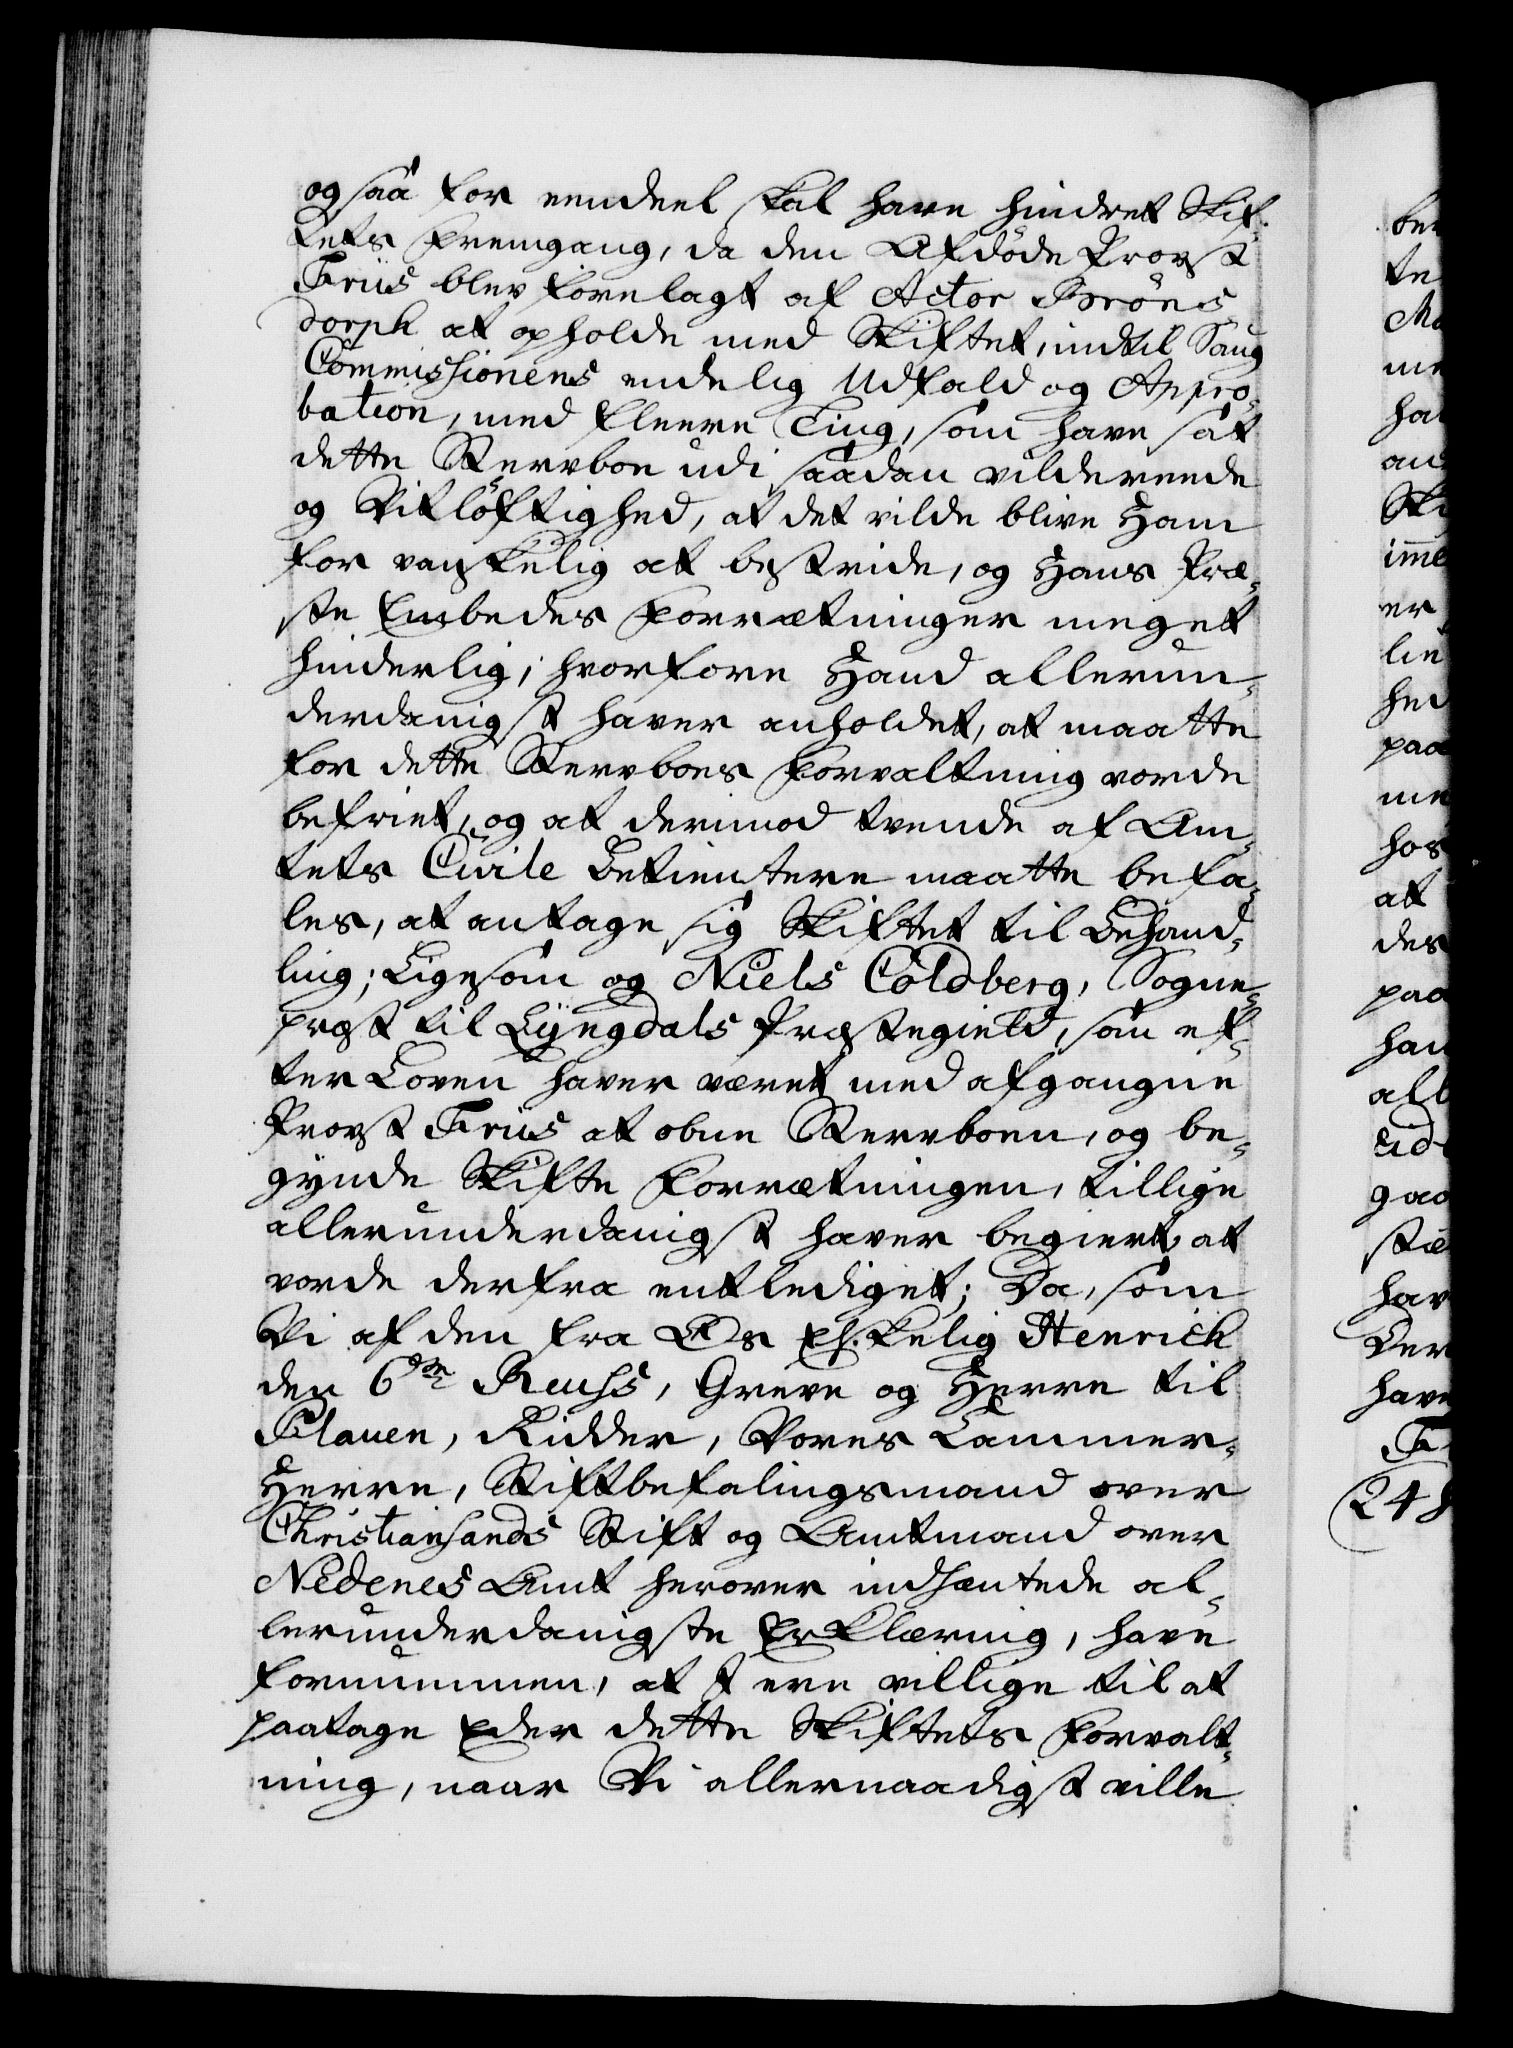 og saa for eendeel skal have hindret Skif-
tets Fremgang, da den Afdöde Provst
Friis blev forelagt af Actor Bröns
dorph at opholde med Skiftet, indtil Saug
Commissionens endelig Udfald og Appro-
bation, med fleere Ting, som have sat
dette Stervboe udi saadan vildereede
og Vitlöftighed, at det vilde blive Ham
for vanskelig at bestride, og Hans Præ-
ste Embedes Forretninger meget
hinderlig; hvorfore Hand allerun-
derdanigst haver anholdet, at maatte
for dette Stervboes Forvaltning vorde
befriet, og at derimod tvende af Am-
tets Civile Betientere maatte befa-
les, at antage sig Skiftet til Behand-
ling; Ligesom og Niels Coldberg, Sogne-
præst til Lyngdals Præstegield, som ef-
ter Loven haver været med afgangne
Provst Friis at obne Stervboen, og be-
gynde Skifte Forretningen, tillige
allerunderdanigst haver begiert at
vorde derfra entlediget; Da, som
Vi af den fra Os Elskelig Henrich
den 6te Reuss, Greve og Herre til
Plauen, Ridder, Vores Cammer-
Herre, Stiftbefalingsmand over
Christiansands Stift og Amtmand over
Nedenes Amt herover indhentede al-
lerunderdanigste Erklæring, have
fornummen, at I ere villige til at
paatage Eder dette Skiftets Forvalt-
ning, naar Vi allernaadigst ville